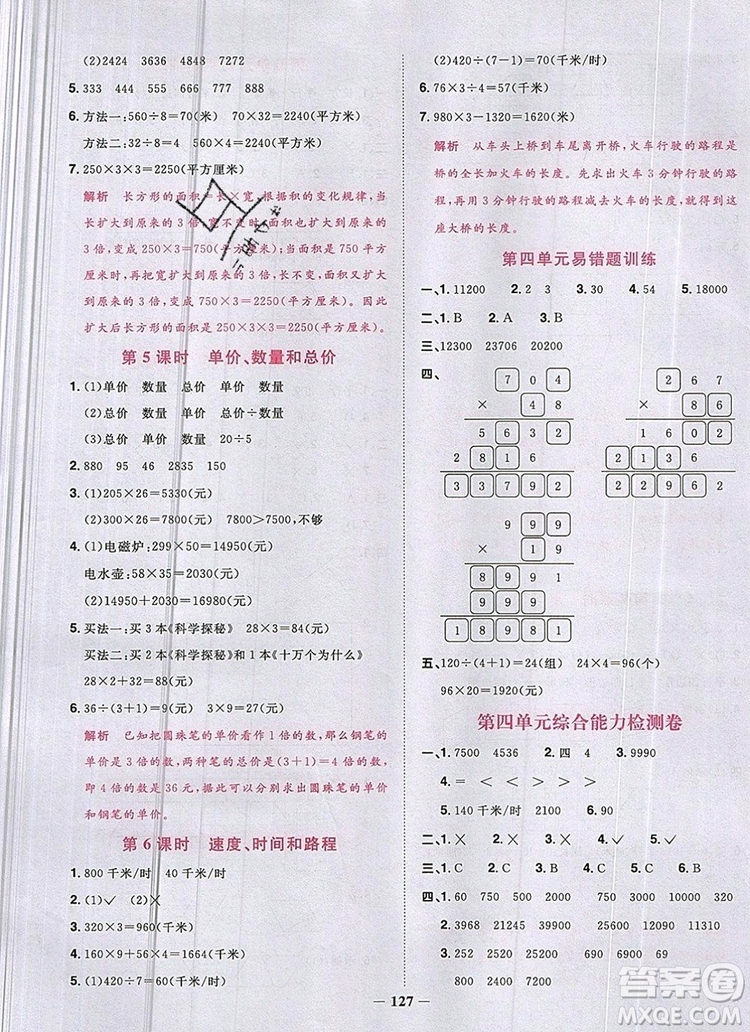 (2)2424 3636 4848 7272
5. 333 444 555 666 777 888
6. 方法一:560÷8=70(米) 70×32=2240(平方米)
方法二:32÷8=4 560×4=2240(平方米)
7. 250×3×3=2250(平方厘米)
解析 长方形的面积=长×宽,根据积的变化规律,当长扩大到原来的3倍,宽不变时,面积扩大到原来的3倍,变成250×3=750(平方厘米);宽再扩大到原来的3倍,把扩大后的长看作不变,面积再扩大到原来的3倍,变成750×3=2250(平方厘米)。因此扩大后长方形的面积是2250平方厘米。
第5课时 单价、数量和总价
1. (1)单价 数量 总价 单价 数量
(2)总价 数量 单价 总价÷数量
(3)总价 单价 数量 20÷5
2. 880 95 46 2835 150
3. (1)205×26=5330(元)
(2)300×26=7800(元) 7800>7500,不够
4. (1)电磁炉:299×50=14950(元)
电水壶:58×35=2030(元)
(2)14950+2030=16980(元)
5. 买法一:买3本《科学探秘》 28×3=84(元)
买法二:买2本《科学探秘》和1本《十万个为什么》
28×2+32=88(元)
6. 36÷(3+1)=9(元) 3×9=27(元)
解析 已知把圆珠笔的单价看作1倍的数,那么钢笔的单价是3倍的数,两种笔的单价是(3+1)=4倍的数,即4倍的数是36元,可以分别求出圆珠笔的单价和钢笔的单价。
第6课时 速度、时间和路程
1. 800千米/时 40千米/时
2. (1)✓ (2)×
3. 320×3=960(千米)
4. 160×9+56×4=1664(千米)
5. (1)420÷7=60(千米/时)
(2)420÷(7-1)=70(千米/时)
6. 76×3÷4=57(千米)
7. 980×3-1320=1620(米)
解析 从车头上桥到车尾离开桥,火车行驶的路程是桥的全长加火车的长度。先求出火车3分钟行驶的路程,再用3分钟行驶的路程减去火车的长度,就得到这座大桥的长度。
第四单元易错题训练
一、1. 11200 2. 2 3 3. 30 4. 54 5. 18000
二、1. B 2. A 3. B
三、12300 23706 20250
四、
7 0 4
× 4 8
5 6 3 2
2 8 1 6
3 3 7 9 2
2 6 7
× 8 6
1 6 0 2
2 1 3 6
2 2 9 6 2
9 9 9
× 1 9
8 9 9 1
9 9 9
1 8 9 8 1
五、120÷(4+1)=24(组) 24×4=96(个)
96×20=1920(元)
第四单元综合能力检测卷
一、1. 7500 4536 2. 四 4 3. 9990
4. = < < > > <
5. 140千米/时 2100 6. 90
二、1. × 2. × 3. × 4. × 5. ×
三、1. C 2. C 3. B 4. A 5. C
四、1. 60 750 2500 720 10000 320
2. 3968 21495 29760 28875
3. 252 252 25200 25200 80 8000
800 2400 2400
127
答案圈
MXQE.COM